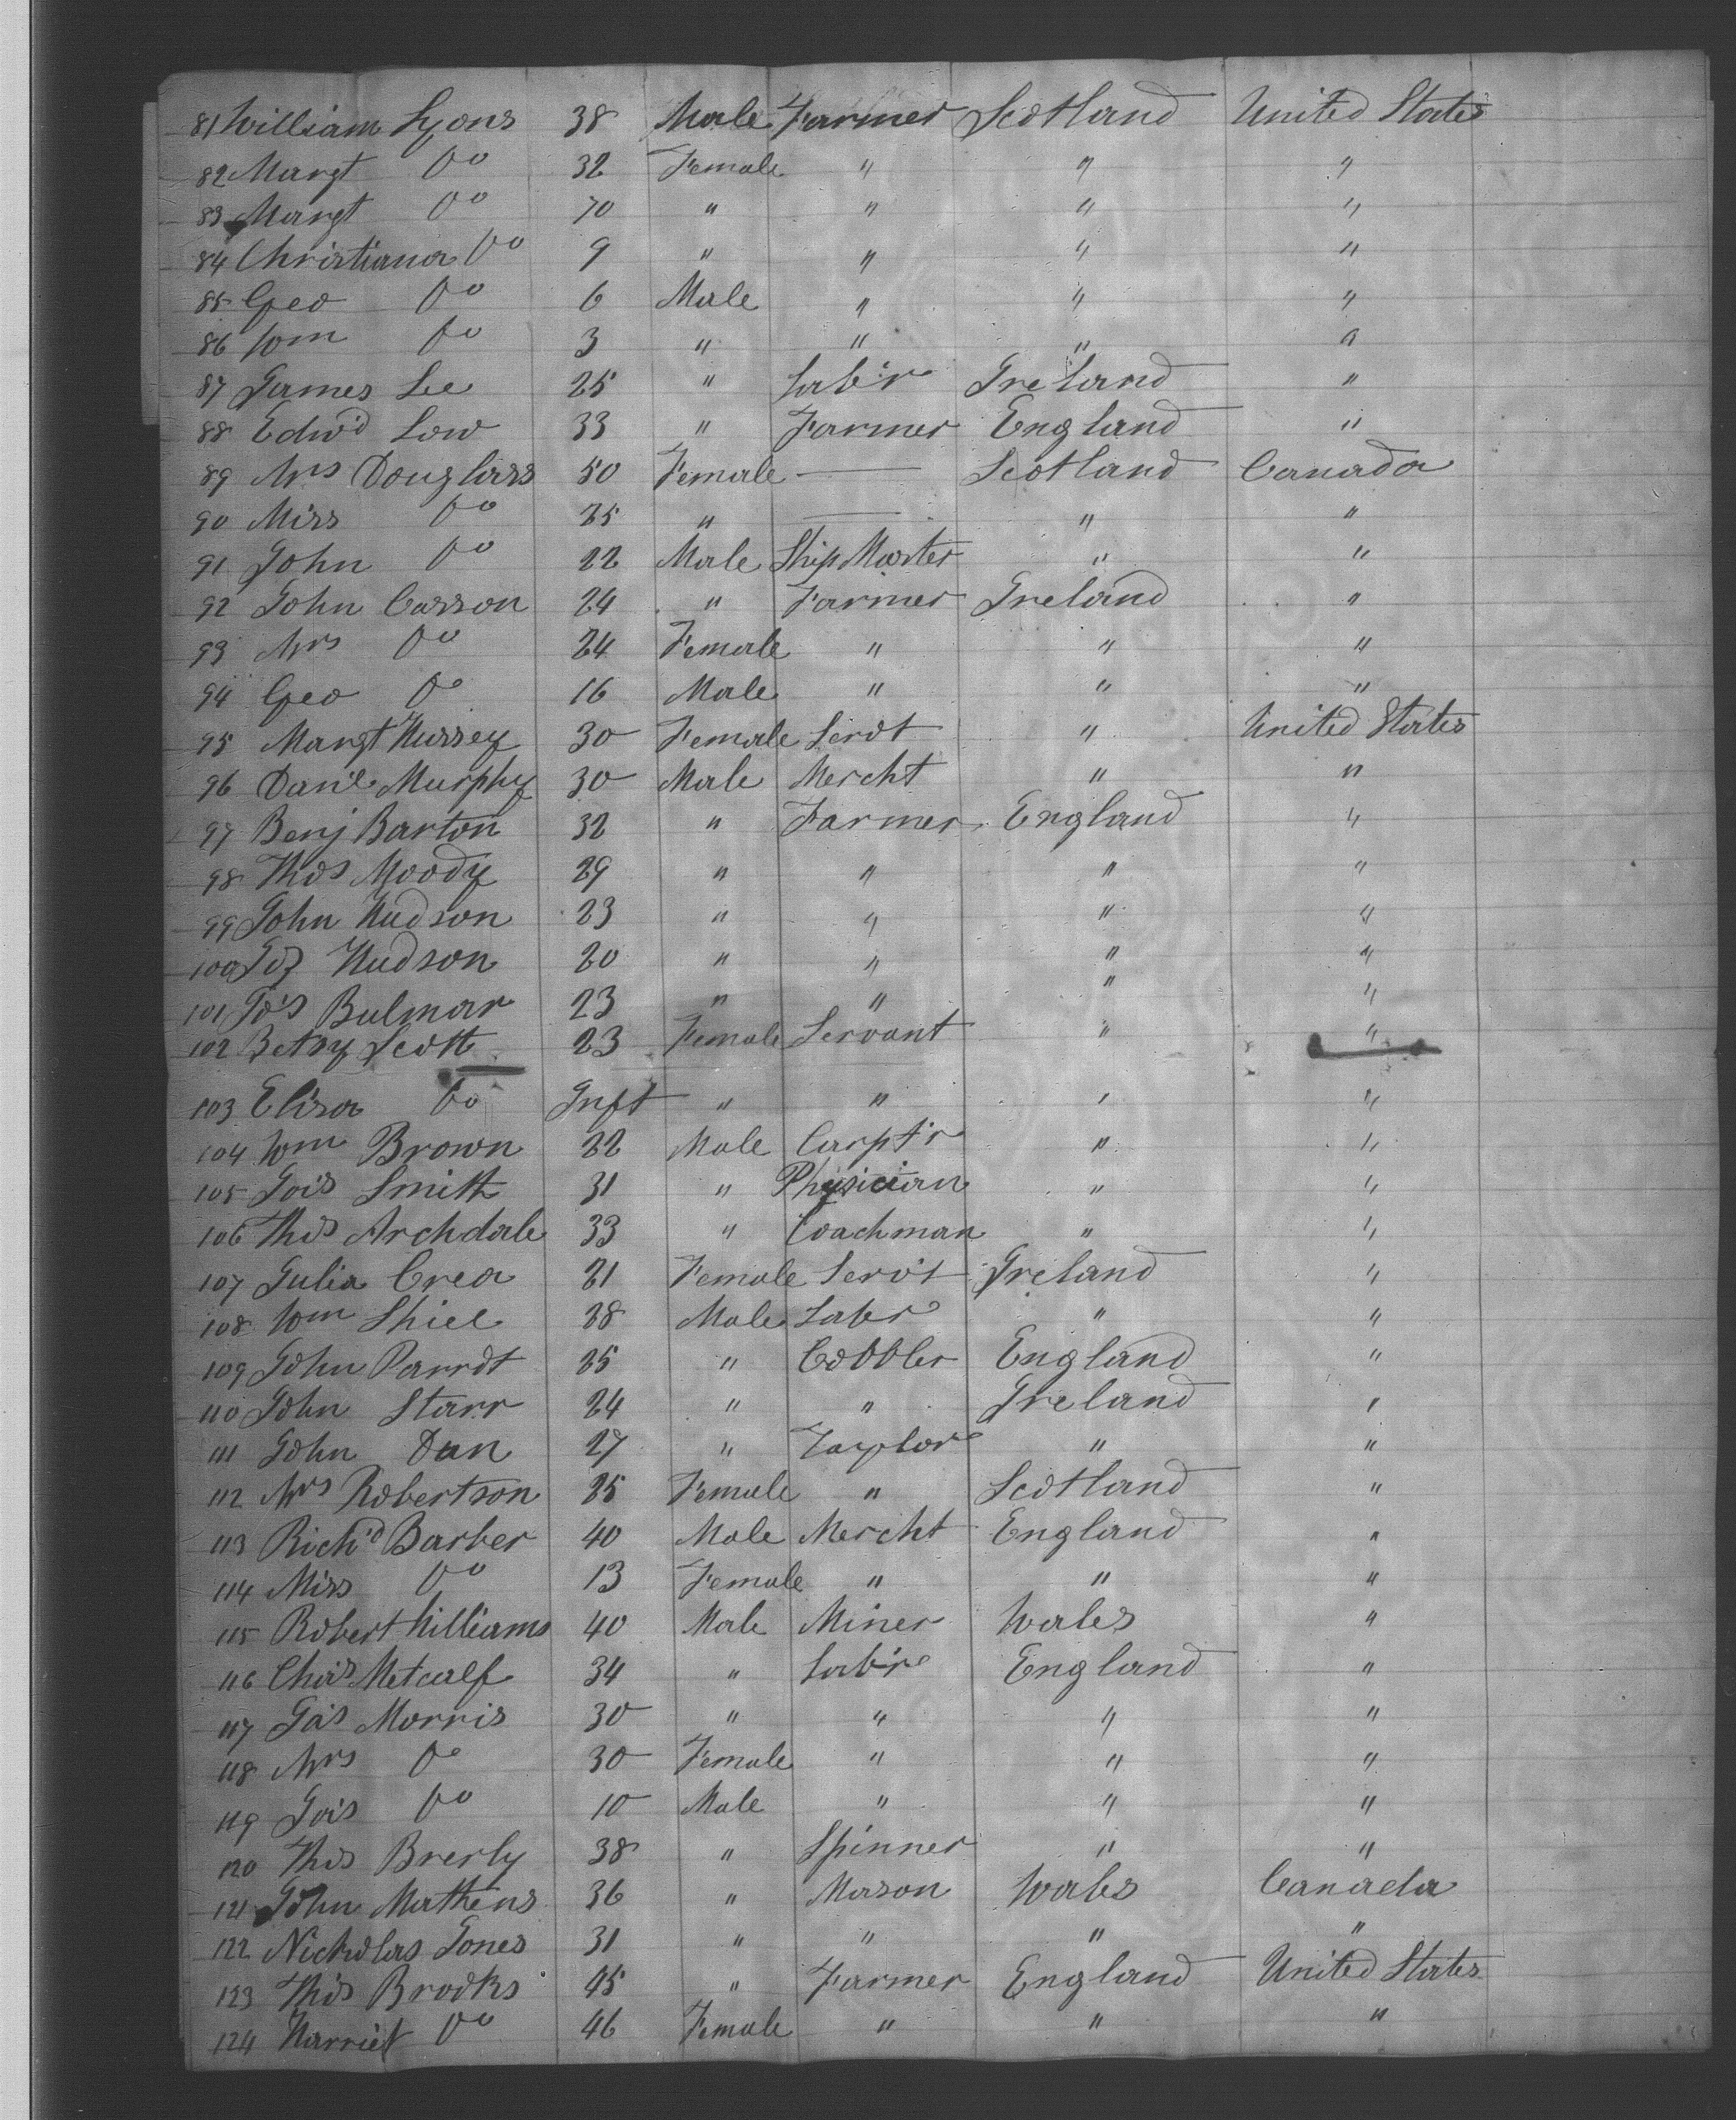 81 William Lyons 38 Male Farmer Scotland United States
82 Margt Do 32 Female " " "
83 Margt Do 70 " " " "
84 Christiana Do 9 " " " "
85 Geo Do 6 Male " " "
86 Wm Do 3 " " " "
87 James Lee 25 " Lab'r Ireland "
88 Edw'd Low 33 " Farmer England "
89 Mrs Douglass 50 Female — Scotland Canada
90 Miss Do 25 " — " "
91 John Do 22 Male Ship Master " "
92 John Carson 24 " Farmer Ireland "
93 Mrs Do 24 Female " " "
94 Geo Do 16 Male " " "
95 Margt Hussey 30 Female Servt " United States
96 Dan'l Murphy 30 Male Mercht " "
97 Benj Barton 32 " Farmer England "
98 Thos Moody 29 " " " "
99 John Hudson 23 " " " "
100 Hudson 20 " " " "
101 Jo's Bulmar 23 " " " "
102 Betsy Scott 23 Female Servant " "
103 Eliza Do Inft " " " "
104 Wm Brown 22 Male Carpt'r " "
105 Jos Smith 31 " Physician " "
106 Thos Archdale 33 " Coachman " "
107 Julia Crea 21 Female Serv't Ireland "
108 Wm Shiel 28 Male Labr " "
109 John Parrot 25 " Cobbler England "
110 John Starr 24 " " Ireland "
111 John Dan 27 " Taylor " "
112 Mrs Robertson 25 Female " Scotland "
113 Rich'd Barber 40 Male Mercht England "
114 Miss Do 13 Female " " "
115 Robert Williams 40 Male Miner Wales "
116 Cha's Metcalf 34 " Lab'r England "
117 Ja's Morris 30 " " " "
118 Mrs Do 30 Female " " "
119 Jos Do 10 Male " " "
120 Thos Brerly 38 " Spinner " "
121 John Mathews 36 " Mason Wales Canada
122 Nicholas Jones 31 " " " "
123 Thos Brooks 45 " Farmer England United States
124 Harriet Do 46 Female " " "